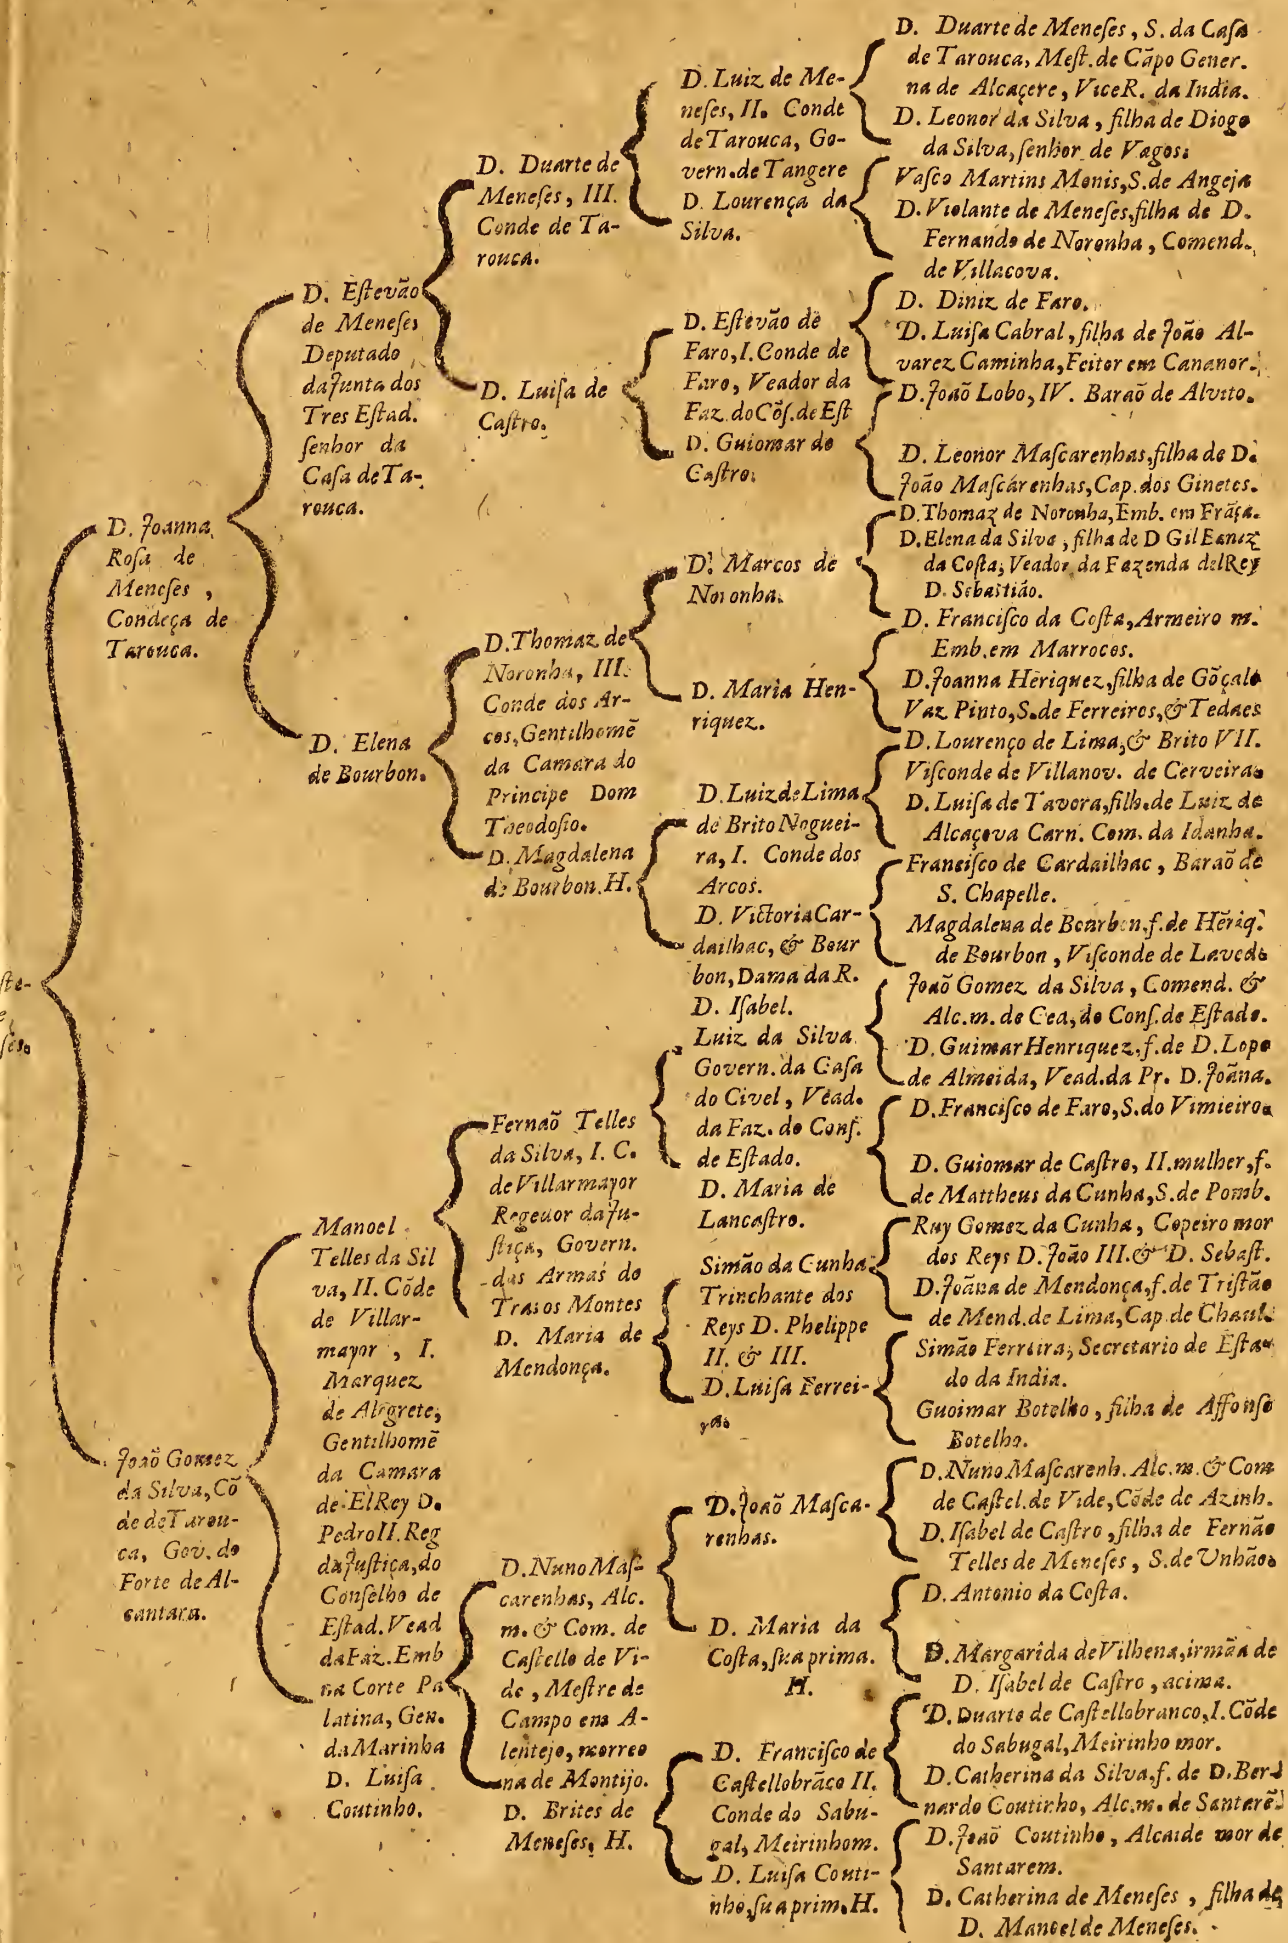 D. Joanna
Rosa de
Meneses ,
Condeça de
Tarouca.
Joaõ Gomez
da Silva, Cõ
de de Tarou-
ca, Gov. do
Forte de Al-
cantara.
D. Estevão
de Meneses
Deputado
da Junta dos
Tres Estad.
senhor da
Casa de Ta-
rouca.
D. Elena
de Bourbon.
Manoel
Telles da Sil
va, II. Cõde
de Villar-
mayor , I.
Marquez
de Alegrete,
Gentilhomẽ
da Camara
de ElRey D.
Pedro II. Reg
da Justiça, do
Conselho de
Estad. Vead
da Faz. Emb
na Corte Pa
latina, Gen.
da Marinha
D. Luisa
Coutinho.
D. Duarte de
Meneses, III.
Conde de Ta-
rouca.
D. Luisa de
Castro.
D. Thomaz de
Noronha, III.
Conde dos Ar-
cos, Gentilhomẽ
da Camara do
Principe Dom
Theodosio.
D. Magdalena
de Bourbon. H.
Fernaõ Telles
da Silva, I. C.
de Villarmayor
Regedor da Ju-
stiça, Govern.
das Armas de
Tras os Montes
D. Maria de
Mendonça.
D. Nuno Mas-
carenhas, Alc.
m. & Com. de
Castello de Vi-
de , Mestre de
Campo em A-
lentejo, morreo
na de Montijo.
D. Brites de
Meneses, H.
D. Luiz de Me-
neses, II. Conde
de Tarouca, Go-
vern. de Tangere
D. Lourença da
Silva.
D. Estevão de
Faro, I. Conde de
Faro, Veador da
Faz. do Cõs. de Est
D. Guiomar de
Castro.
D. Marcos de
Noronha.
D. Maria Hen-
riquez.
D. Luiz de Lima
de Brito Noguei-
ra, I. Conde dos
Arcos.
D. Victoria Car-
dailhac, & Bour
bon, Dama da R.
D. Isabel.
Luiz da Silva
Govern. da Casa
do Civel , Vead.
da Faz. do Cons.
de Estado.
D. Maria de
Lancastro.
Simão da Cunha
Trinchante dos
Reys D. Phelippe
II. & III.
D. Luisa Ferrei-
ra.
D. Joaõ Masca-
renhas.
D. Maria da
Costa, sua prima.
H.
D. Francisco de
Castellobrãco II.
Conde do Sabu-
gal, Meirinhom.
D. Luisa Couti-
nho, sua prim. H.
D. Duarte de Meneses , S. da Casa
de Tarouca, Mest. de Cãpo Gener.
na de Alcaçere , ViceR. da India.
D. Leonor da Silva , filha de Diogo
da Silva, senhor de Vagos.
Vasco Martins Monis, S. de Angeja
D. Violante de Meneses, filha de D.
Fernando de Noronha , Comend.
de Villacova.
D. Diniz de Faro.
D. Luisa Cabral, filha de João Al-
varez Caminha, Feitor em Cananor.
D. João Lobo, IV. Baraõ de Alvito.
D. Leonor Mascarenhas, filha de D.
João Mascarenhas, Cap. dos Ginetes.
D. Thomaz de Noronha, Emb. em Frãça.
D. Elena da Silva , filha de D Gil Eanez
da Costa, Veador da Fazenda delRey
D. Sebastião.
D. Francisco da Costa, Armeiro m.
Emb. em Marrocos.
D. Joanna Hẽriquez, filha de Gõçalo
Vaz Pinto, S. de Ferreiros, & Tedaes
D. Lourenço de Lima, & Brito VII.
Visconde de Villanov. de Cerveira.
D. Luisa de Tavora, filh. de Luiz de
Alcaçova Carn. Com. da Idanha.
Francisco de Cardailhac , Baraõ de
S. Chapelle.
Magdalena de Bourbon. f. de Hẽriq.
de Bourbon , Visconde de Lavedo
João Gomez da Silva , Comend. &
Alc. m. de Cea, do Cons. de Estado.
D. Guimar Henriquez, f. de D. Lopo
de Almeida, Vead. da Pr. D. Joãna.
D. Francisco de Faro, S. do Vimieiro.
D. Guiomar de Castro, II. mulher, f.
de Mattheus da Cunha, S. de Pomb.
Ruy Gomez da Cunha, Copeiro mor
dos Reys D. João III. & D. Sebast.
D. Joãna de Mendonça, f. de Tristão
de Mend. de Lima, Cap. de Chaul.
Simão Ferreira, Secretario de Esta-
do da India.
Guoimar Botelho , filha de Affonso
Botelho.
D. Nuno Mascarenh. Alc. m. & Com
de Castel. de Vide, Cõde de Azinh.
D. Isabel de Castro , filha de Fernão
Telles de Meneses , S. de Unhão.
D. Antonio da Costa.
D. Margarida de Vilhena, irmãa de
D. Isabel de Castro , acima.
D. Duarte de Castellobranco, I. Cõde
do Sabugal, Meirinho mor.
D. Catherina da Silva, f. de D. Ber-
nardo Coutinho, Alc. m. de Santarẽ.
D. Joaõ Coutinho , Alcaide mor de
Santarem.
D. Catherina de Meneses , filha de
D. Manoel de Meneses.